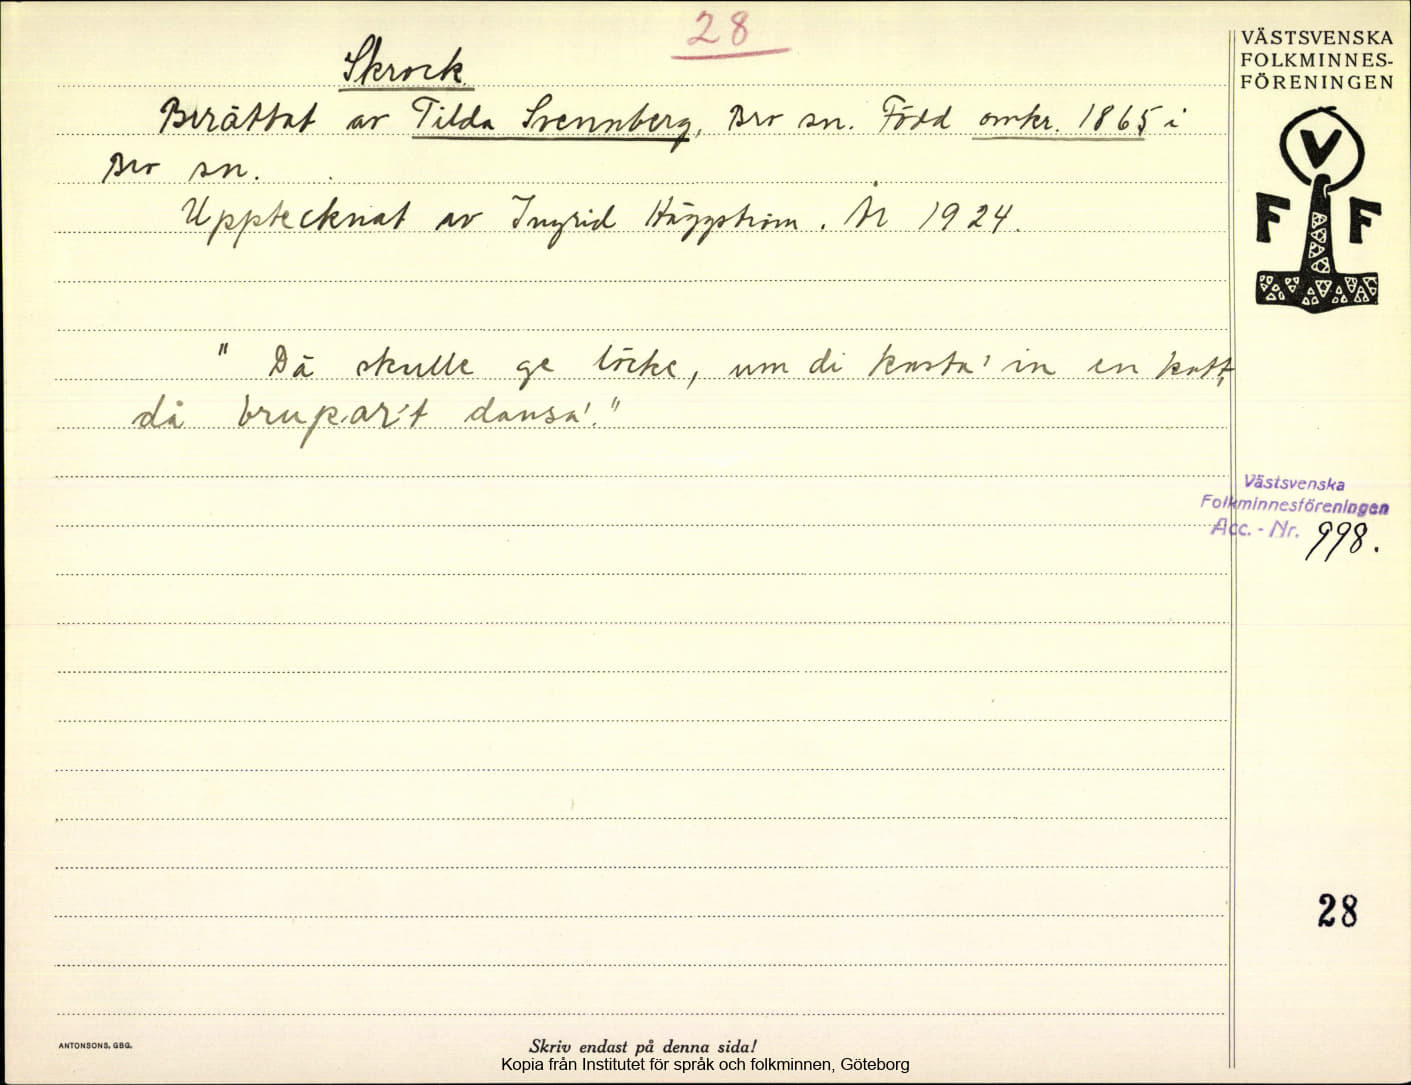 28
Skrock.
Berättat av Tilda Svennberg, Bro sn. Född omkr. 1865 i
Bro sn.
Upptecknat av Ingrid Häggström. År 1924.
" Dä skulle ge löcke, um di kasta' in en katt,
då brukar't dansa'."
VÄSTSVENSKA
FOLKMINNES-
FÖRENINGEN
V
F F
Västsvenska
Folkminnesföreningen
Acc. - Nr. 998.
28
ANTONSONS, GBG.
Skriv endast på denna sida!
Kopia från Institutet för språk och folkminnen, Göteborg